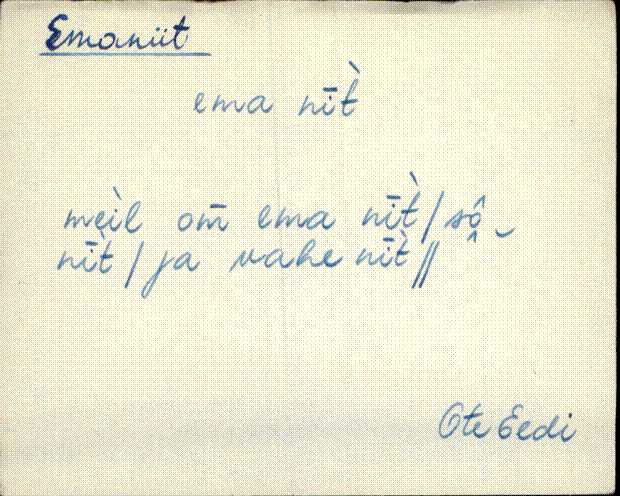 Emaniit
ema nīt̀
meìl om̄ ema nīt̀ / sô̭‿
nīt̀ / ja vahe nīt̀ //
Ote Eedi